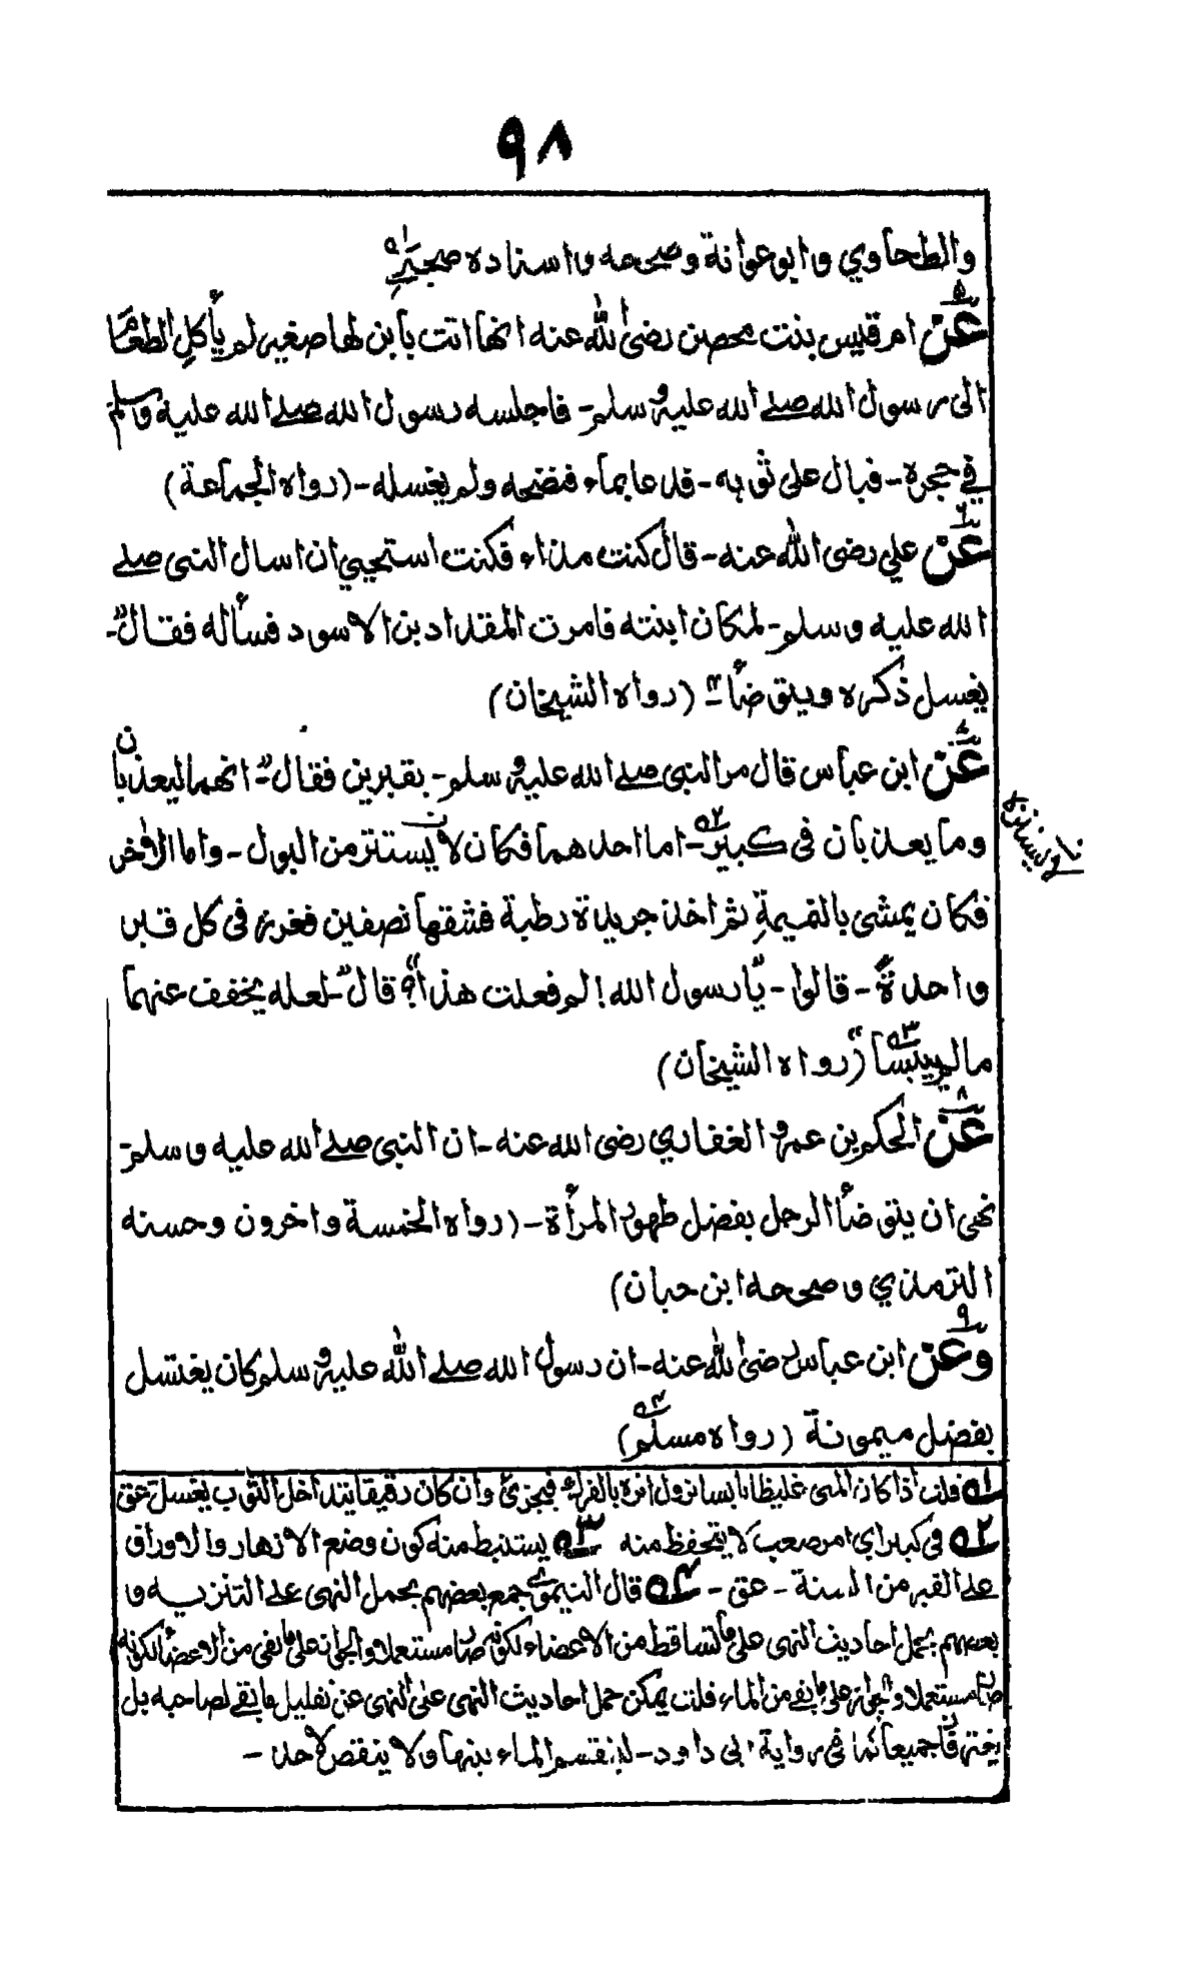 ٩٨
والطحاوي وابوعوانة وصححه واسناده صحيح ١ـه
عن ٥ ام قيس بنت محصن رضى الله عنه انها اتت بابن لها صغير لم يأكل الطعام
الى رسول الله صلے الله عليه وسلم - فاجلسه رسول الله صلے الله عليه وسلم
في حجره - فبال على ثوبه - فدعا بماء فنضحه ولم يغسله - (رواه الجماعة)
عن ٦ علي رضى الله عنه - قال كنت مذاء فكنت استحيي ان اسال النبى صلے
الله عليه وسلم - لمكان ابنته فامرت المقداد بن الاسود فسأله فقال "-
يغسل ذكره ويتوضأ" - (رواه الشيخان)
عن ابن عباس قال مر النبى صلے الله عليه وسلم - بقبرين فقال "- انهما ليعذبان
وما يعذبان فى كبير ٢ـه - اما احدهما فكان لا يستتر من البول - واما الاخر
فكان يمشى بالنميمة ثم اخذ جريدة رطبة فشقها نصفين فغرز فى كل قبر
واحدة - قالوا - "يا رسول الله! لم فعلت هذا؟" قال "- لعله يخفف عنهما
مالم ييبسا ٣ـه" (رواه الشيخان)
عن ٨ الحكم بن عمرو الغفاري رضى الله عنه - ان النبى صلے الله عليه وسلم -
نهى ان يتوضأ الرجل بفضل طهور المرأة - (رواه الخمسة واخرون وحسنه
الترمذي وصححه ابن حبان)
وعن ٩ ابن عباس رضى الله عنه - ان رسول الله صلے الله عليه وسلم كان يغتسل
بفضل ميمونة (رواه مسلم ٤ـه)
١ـه قلت اذا كان المنى غليظا يابسا نزول اثره بالفرك فيجزئ وان كان رقيقا يتداخل الثوب يغسل - عق
٢ـه فى كبير اي امر صعب لا يتحفظ منه ٣ـه يستنبط منه كون وضع الازهار والاوراق
على القبر من السنة - عق - ٤ـه قال النيموى جمع بعضهم بحمل النهى على التنزيه و
بعضهم بحمل احاديث النهى على ما تساقط من الاعضاء لكونه صار مستعملا والجواز على ما بقى من الاعضاء لكونه
صار مستعملا والجواز على ما بقى من الماء قلت يمكن حمل احاديث النهى على النهى عن تقليل ما بقى لصاحبه بل
يغترفا جميعا كما فى رواية ابى داود - لينقسم الماء بينهما ولا ينقص لاحد -